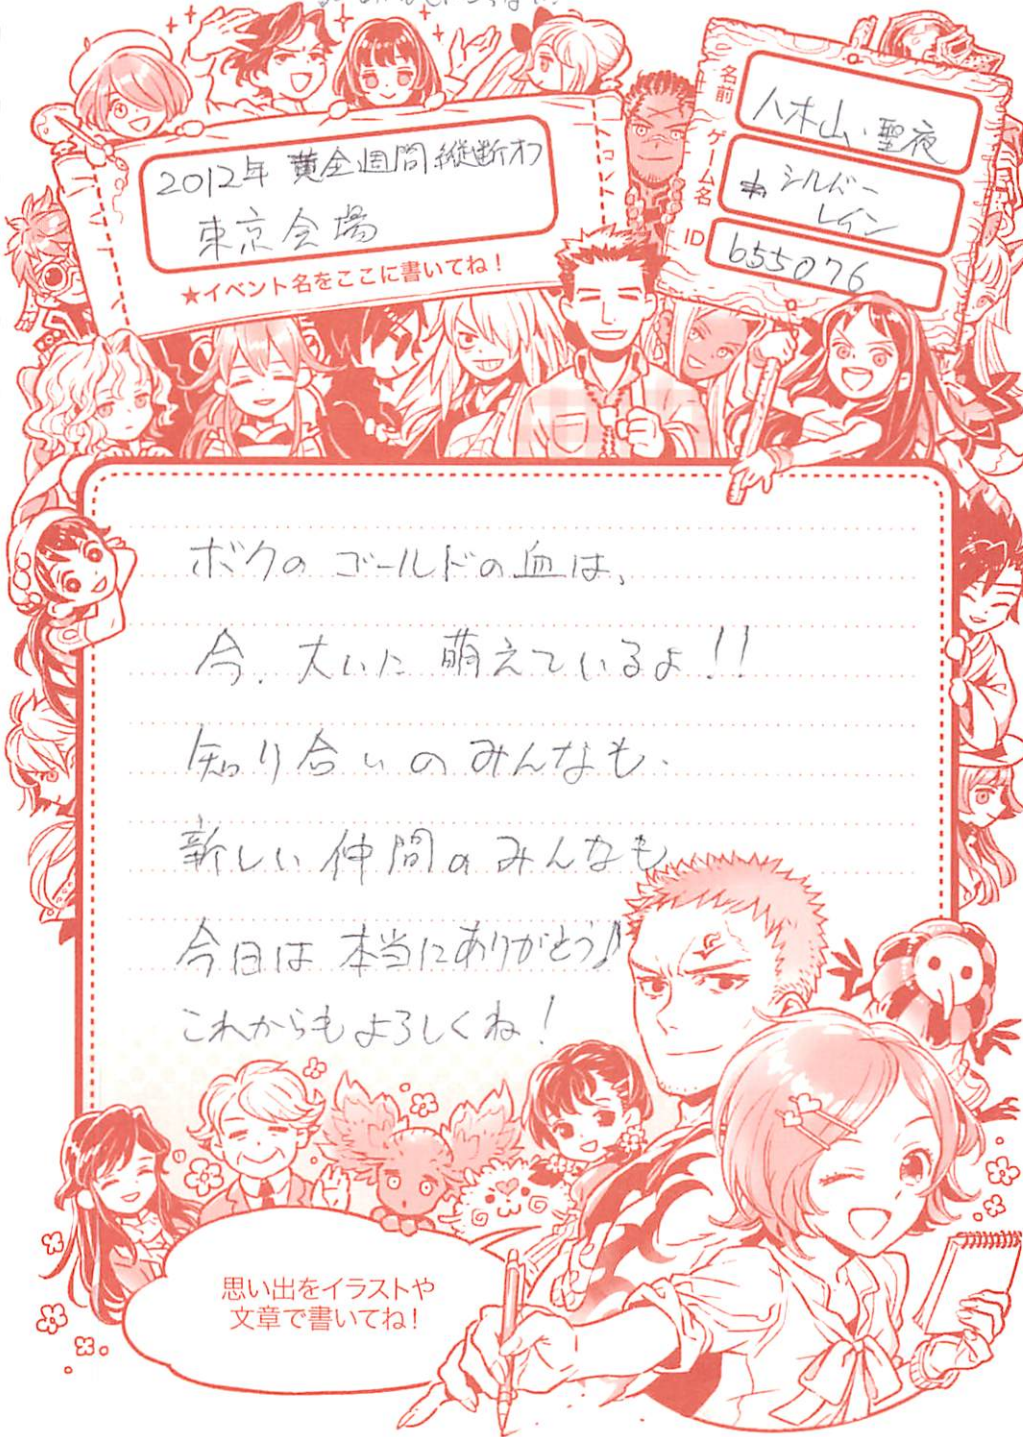 2012年 黄金週間縦断オフ
東京会場
★イベント名をここに書いてね！
コメント
名前
八木山・聖夜
ゲーム名
シルバー
レイン
ID
b55076
ボクのゴールドの血は、
今、大いに萌えているよ!!
知り合いのみんなも、
新しい仲間のみんなも
今日は本当にありがとう♪
これからもよろしくね！
思い出をイラストや
文章で書いてね！